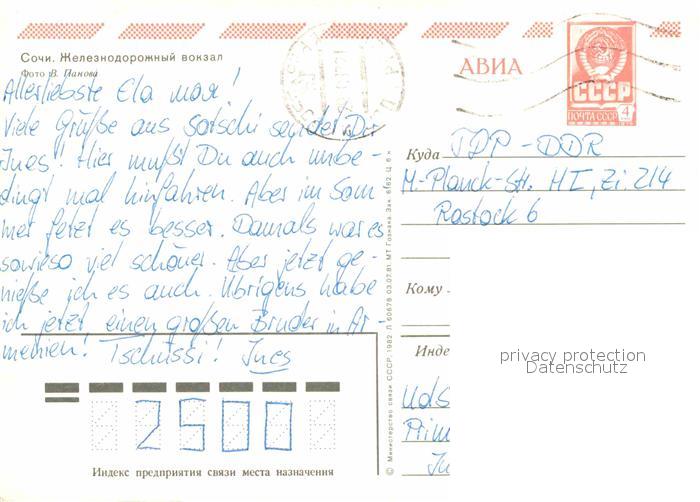 Сочи. Железнодорожный вокзал
Фото В. Панова
АВИА
СССР
ПОЧТА СССР 4
Allerliebste Ela моя!
Viele Grüße aus Sotschi sendet Dir
Ines! Hier mußt Du auch unbe-
dingt mal hinfahren. Aber im Som
mer fetzt es besser. Damals war es
sowieso viel schöner. Aber jetzt ge-
nieße ich es auch. Übrigens habe
ich jetzt einen großen Bruder in Ar-
menien! Tschüssi! Ines
Куда TDP-DDR
M.-Planck-Str. HI, Zi. 214
Rostock 6
Кому
Инде
UdS
Prim
In
privacy protection
Datenschutz
2500
Индекс предприятия связи места назначения
© Министерство связи СССР. 1982. Л 60678 03.07.81. МТ Гознака. Зак. 6162. Ц. 6 к.